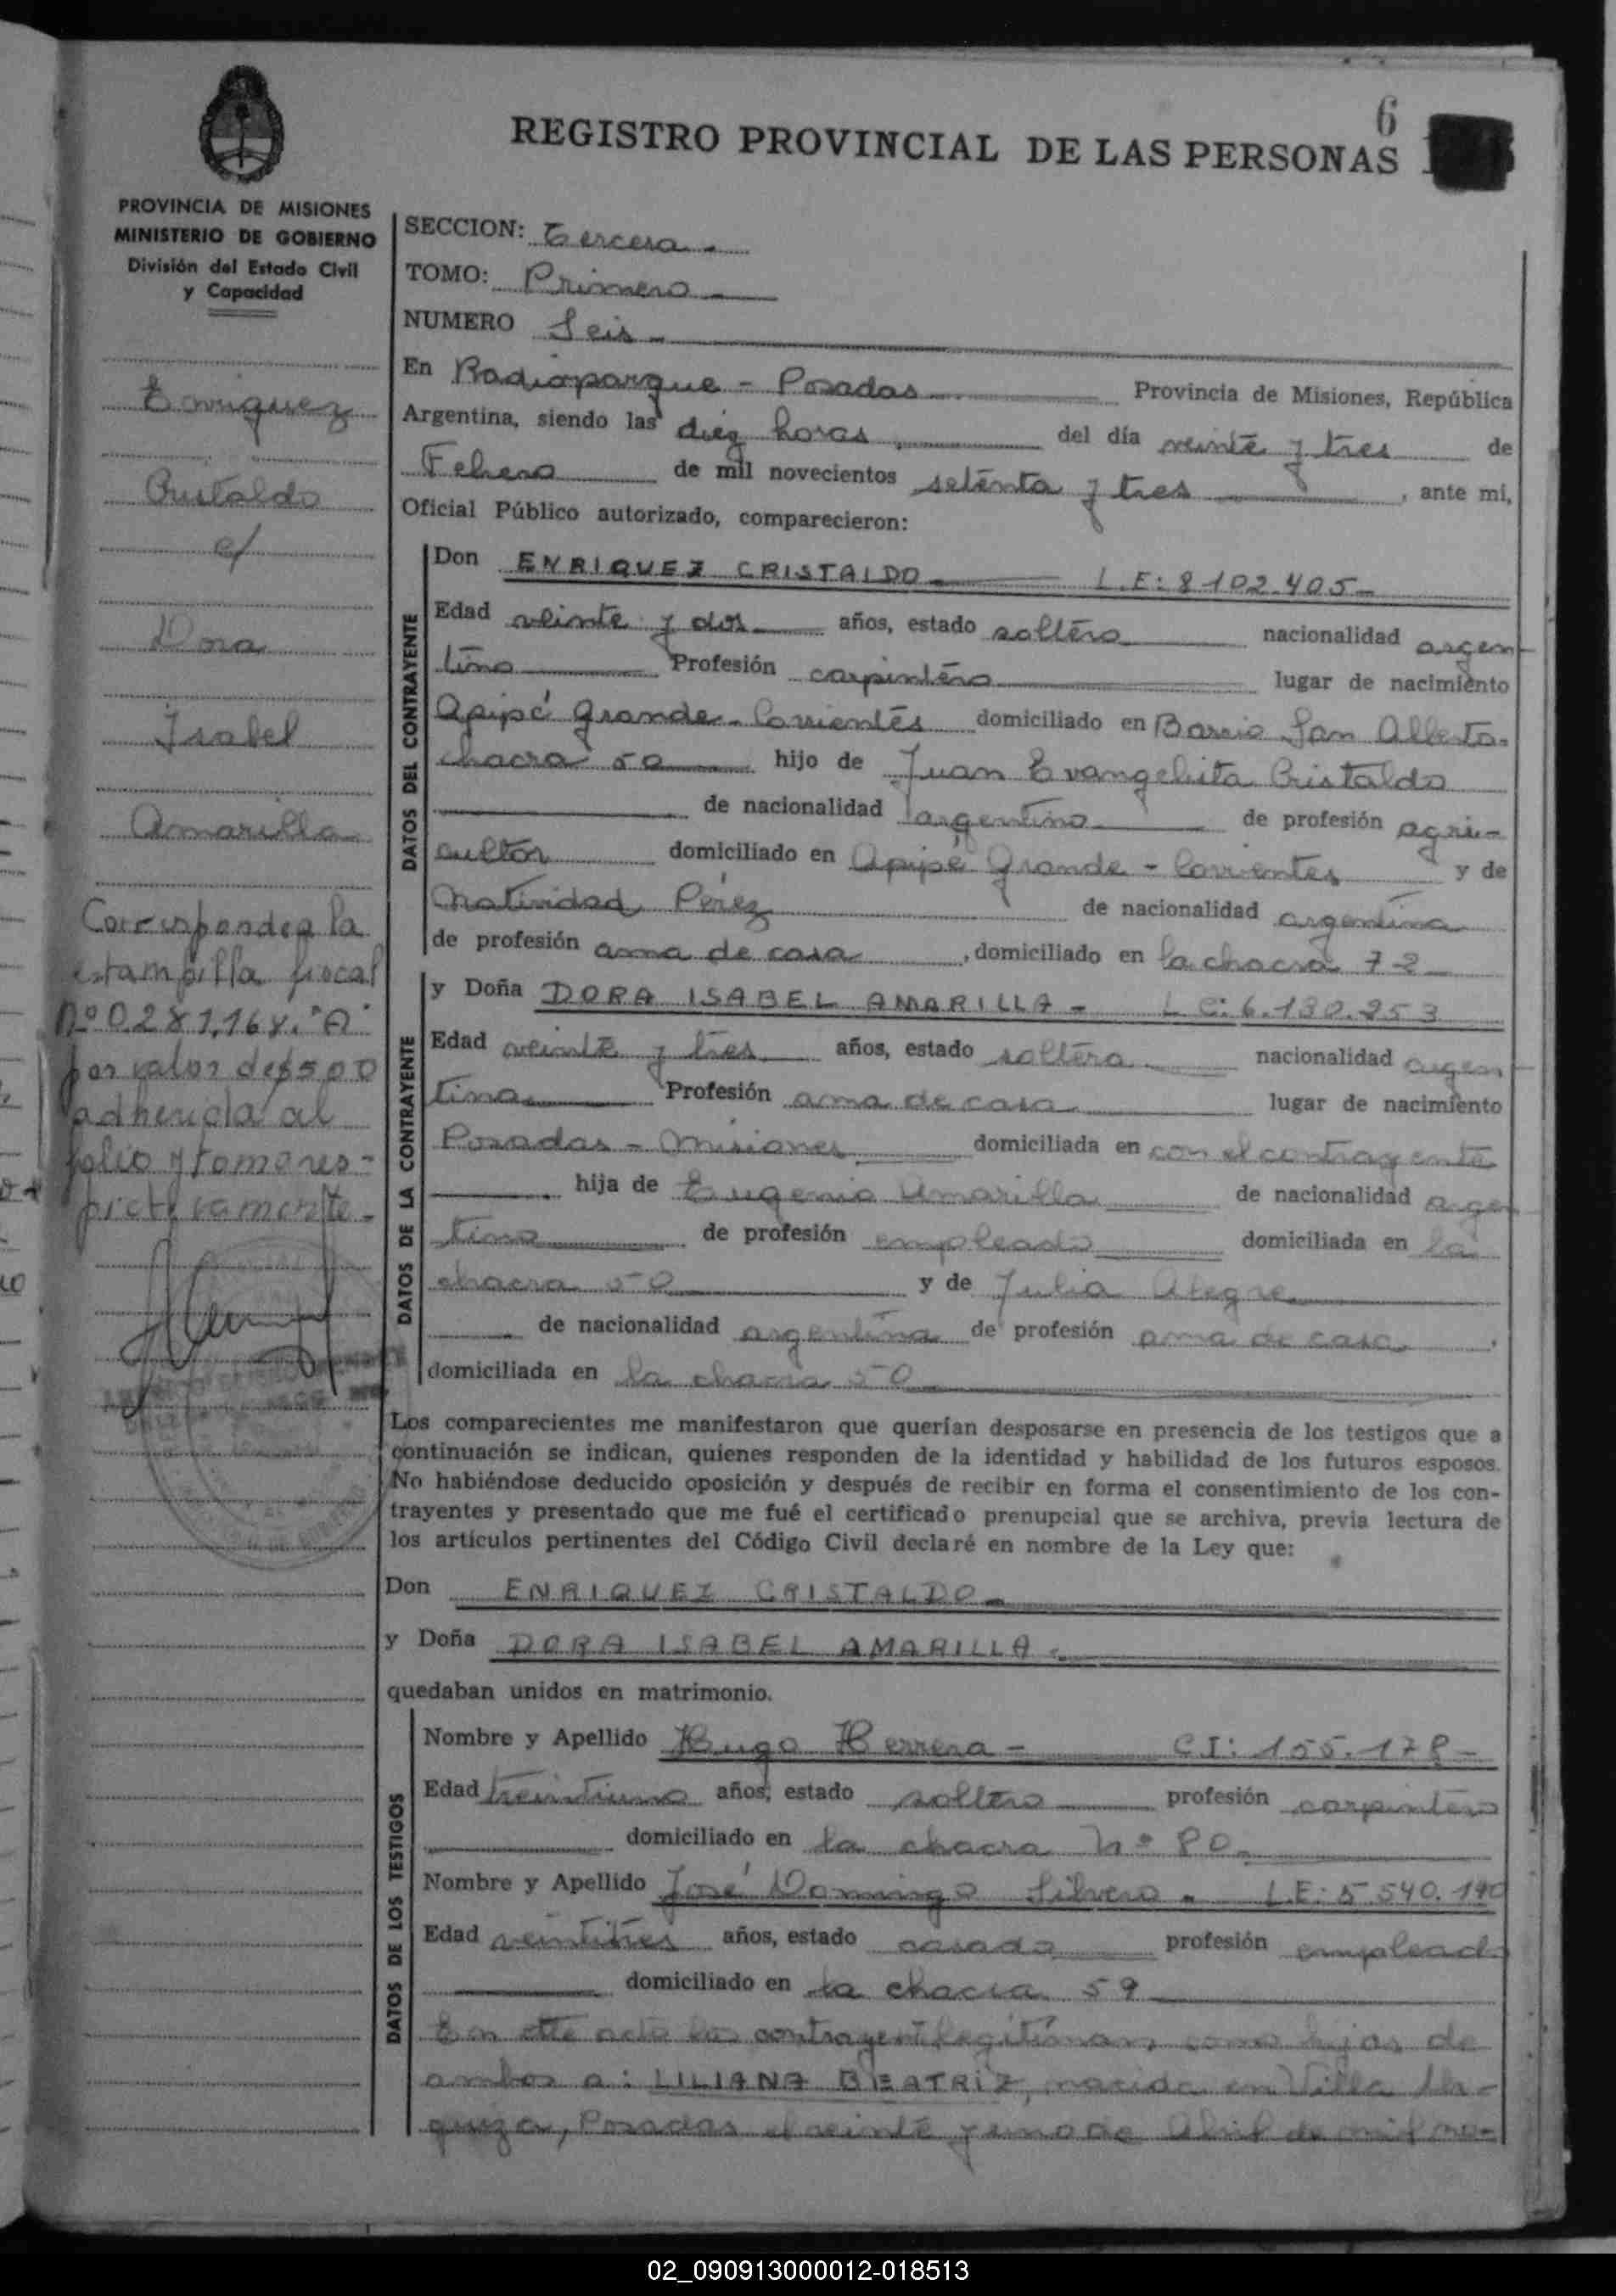 6
REGISTRO PROVINCIAL DE LAS PERSONAS
PROVINCIA DE MISIONES
MINISTERIO DE GOBIERNO
División del Estado Civil
y Capacidad
Enriquez
Cristaldo
c/
Dora
Isabel
Amarilla
Corresponde a la
estampilla fiscal
Nº 0281,168. "A"
por valor de $500
adherida al
folio y tomo res-
pectivamente.-
SECCION: Tercera.-
TOMO: Primero
NUMERO Seis
En Radioparque - Posadas Provincia de Misiones, República
Argentina, siendo las diez horas, del día veinte y tres de
Febrero de mil novecientos setenta y tres, ante mí,
Oficial Público autorizado, comparecieron:
DATOS DEL CONTRAYENTE
Don ENRIQUEZ CRISTALDO L.E: 8102.405-
Edad veinte y dos años, estado soltero nacionalidad argen-
tino Profesión carpintero lugar de nacimiento
Apipé Grande - Corrientes domiciliado en Barrio San Alberto-
chacra 50 hijo de Juan Evangelista Cristaldo
de nacionalidad argentino de profesión agri-
cultor domiciliado en Apipé Grande - Corrientes y de
Natividad Pérez de nacionalidad argentina
de profesión ama de casa, domiciliado en la chacra 72
DATOS DE LA CONTRAYENTE
y Doña DORA ISABEL AMARILLA - L.C: 6.130.253
Edad veinte y tres años, estado soltera nacionalidad argen-
tina Profesión ama de casa lugar de nacimiento
Posadas - Misiones domiciliada en con el contrayente
hija de Eugenio Amarilla de nacionalidad argen
tino de profesión empleado domiciliada en la
chacra 50 y de Julia Alegre
de nacionalidad argentina de profesión ama de casa,
domiciliada en la chacra 50
Los comparecientes me manifestaron que querían desposarse en presencia de los testigos que a
continuación se indican, quienes responden de la identidad y habilidad de los futuros esposos.
No habiéndose deducido oposición y después de recibir en forma el consentimiento de los con-
trayentes y presentado que me fué el certificado prenupcial que se archiva, previa lectura de
los artículos pertinentes del Código Civil declaré en nombre de la Ley que:
Don ENRIQUEZ CRISTALDO
y Doña DORA ISABEL AMARILLA.
quedaban unidos en matrimonio.
DATOS DE LOS TESTIGOS
Nombre y Apellido Hugo Herrera - C.I: 155.178-
Edad treintiuno años, estado soltero profesión carpintero
domiciliado en la chacra Nº 80
Nombre y Apellido José Domingo Silvero - L.E: 5.540.190
Edad veintitres años, estado casado profesión empleado
domiciliado en la chacra 59
En este acto los contrayent legitiman como hijas de
ambos a: LILIANA BEATRIZ, nacida en Villa Ur-
quiza, Posadas el veinte y uno de Abril de mil no-
02_090913000012-018513